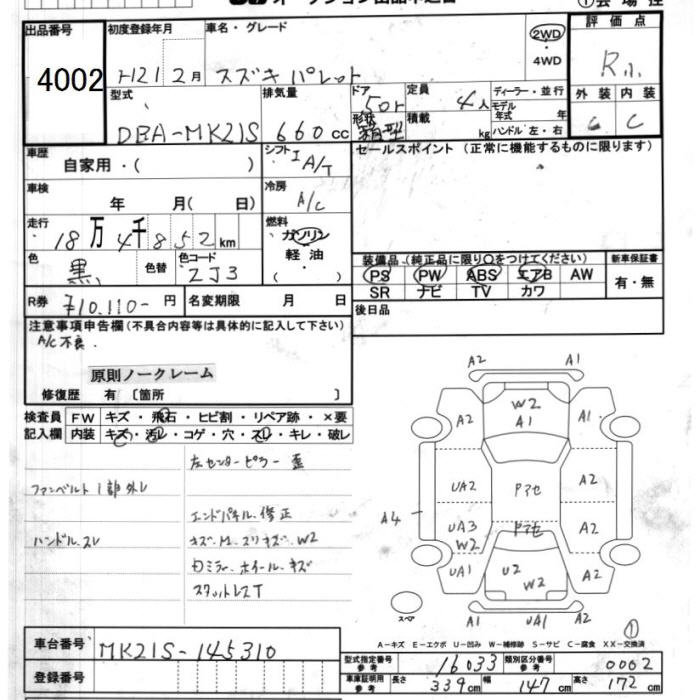 ①会場控
出品番号
初度登録年月
車名・グレード
評価点
4002
H21 2月
スズキ パレット
2WD
・
4WD
R
型式
排気量
ドア
形状
定員
積載
ディーラー・並行
モデル
年式 年
ハンドル 左・右
外装 内装
DBA-MK21S
660cc
5Dr
箱型
4人
kg
C C
車歴
自家用・( )
シフト
I A/T
セールスポイント (正常に機能するものに限ります)
車検
年 月( 日)
冷房
A/C
走行
18万4千852km
燃料
ガソリン
軽油
( )
色
黒
色替
色コード
ZJ3
装備品 (純正品に限り○をつけてください)
新車保証書
PS PW ABS エアB AW
SR ナビ TV カワ
有・無
R券
¥10,110-円
名変期限 月 日
後日品
注意事項申告欄(不具合内容等は具体的に記入して下さい)
A/C不良.
原則ノークレーム
修復歴 有〔箇所 〕
検査員
記入欄
FW キズ・飛石・ヒビ割・リペア跡・×要
内装 キズ・汚レ・コゲ・穴・スレ・キレ・破レ
左センターピラー 歪
ファンベルト1部外レ
エンドパネル 修正
ハンドル.スレ
キズ.M.スリキズ.W2
ホイール.キズ
A2 A1
A2 W2 A1 A1
UA2 Pアセ A2
A4 UA3 W2 Pアセ A2
UA1 U2 W2 A2
スペア
A1 UA1 A2
①
A-キズ E-エクボ U-凹み W-補修跡 S-サビ C-腐食 XX-交換済
車台番号
MK21S-145310
登録番号
型式指定番号
参考
16033
類別区分番号
参考
0002
車庫証明用
参考
長さ 339cm 幅 147cm 高さ 172cm